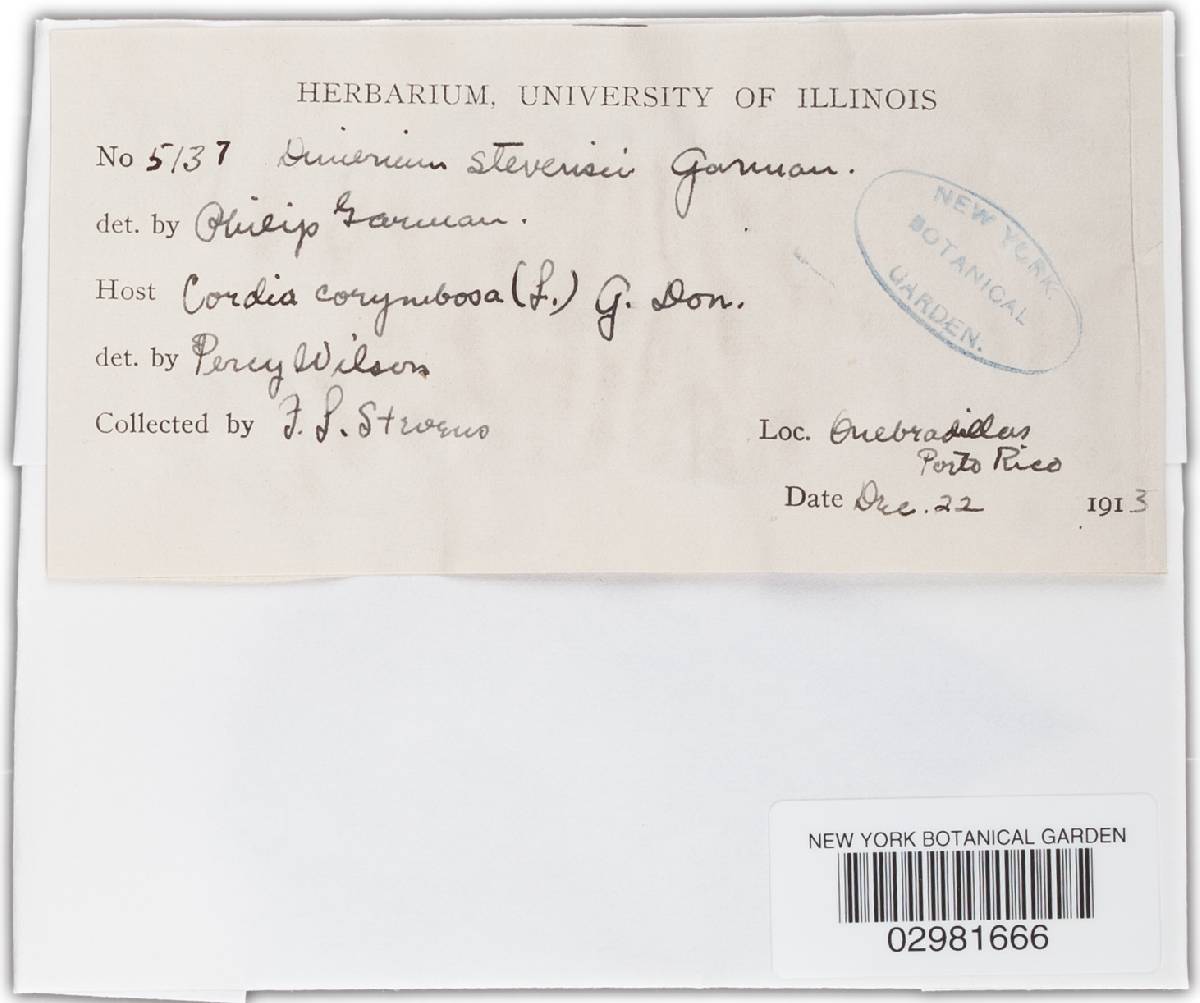 HERBARIUM, UNIVERSITY OF ILLINOIS
No 5137 Dimerium stevensii Garman.
det. by Philip Garman.
Host Cordia corymbosa (L.) G. Don.
det. by Percy Wilson
Collected by F. L. Stevens
Loc. Quebradillas
Porto Rico
Date Dec. 22 1913
NEW YORK
BOTANICAL
GARDEN.
NEW YORK BOTANICAL GARDEN
02981666